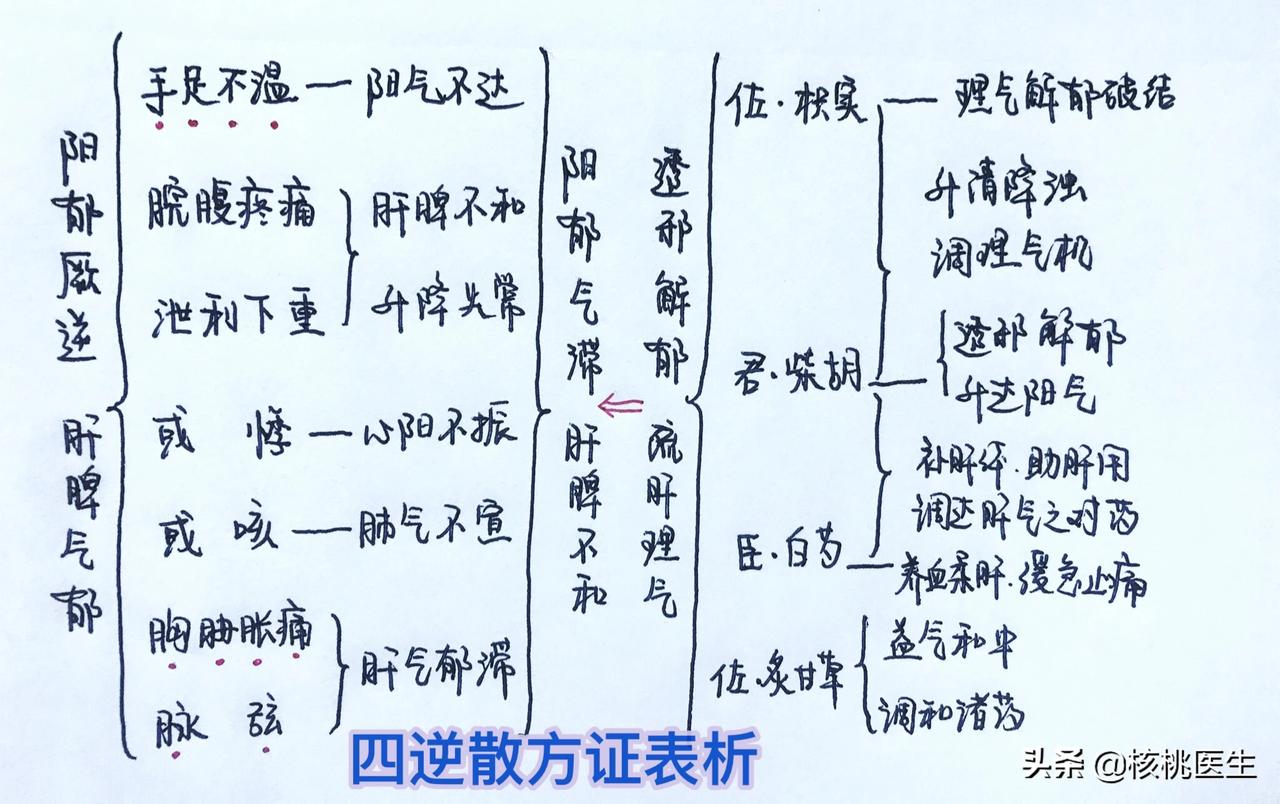 阳郁厥逆 肝脾气郁
手足不温 — 阳气不达
脘腹疼痛
泄利下重
肝脾不和
升降失常
或 悸 — 心阳不振
或 咳 — 肺气不宣
胸胁胀痛
脉 弦
肝气郁滞
阳郁气滞 肝脾不和
透邪解郁 疏肝理气
佐·枳实 — 理气解郁破结
升清降浊
调理气机
君·柴胡 — 透邪解郁
升达阳气
补肝体·助肝用
调达肝气之对药
臣·白芍 — 养血柔肝·缓急止痛
佐·炙甘草
益气和中
调和诸药
四逆散方证表析
头条 @核桃医生